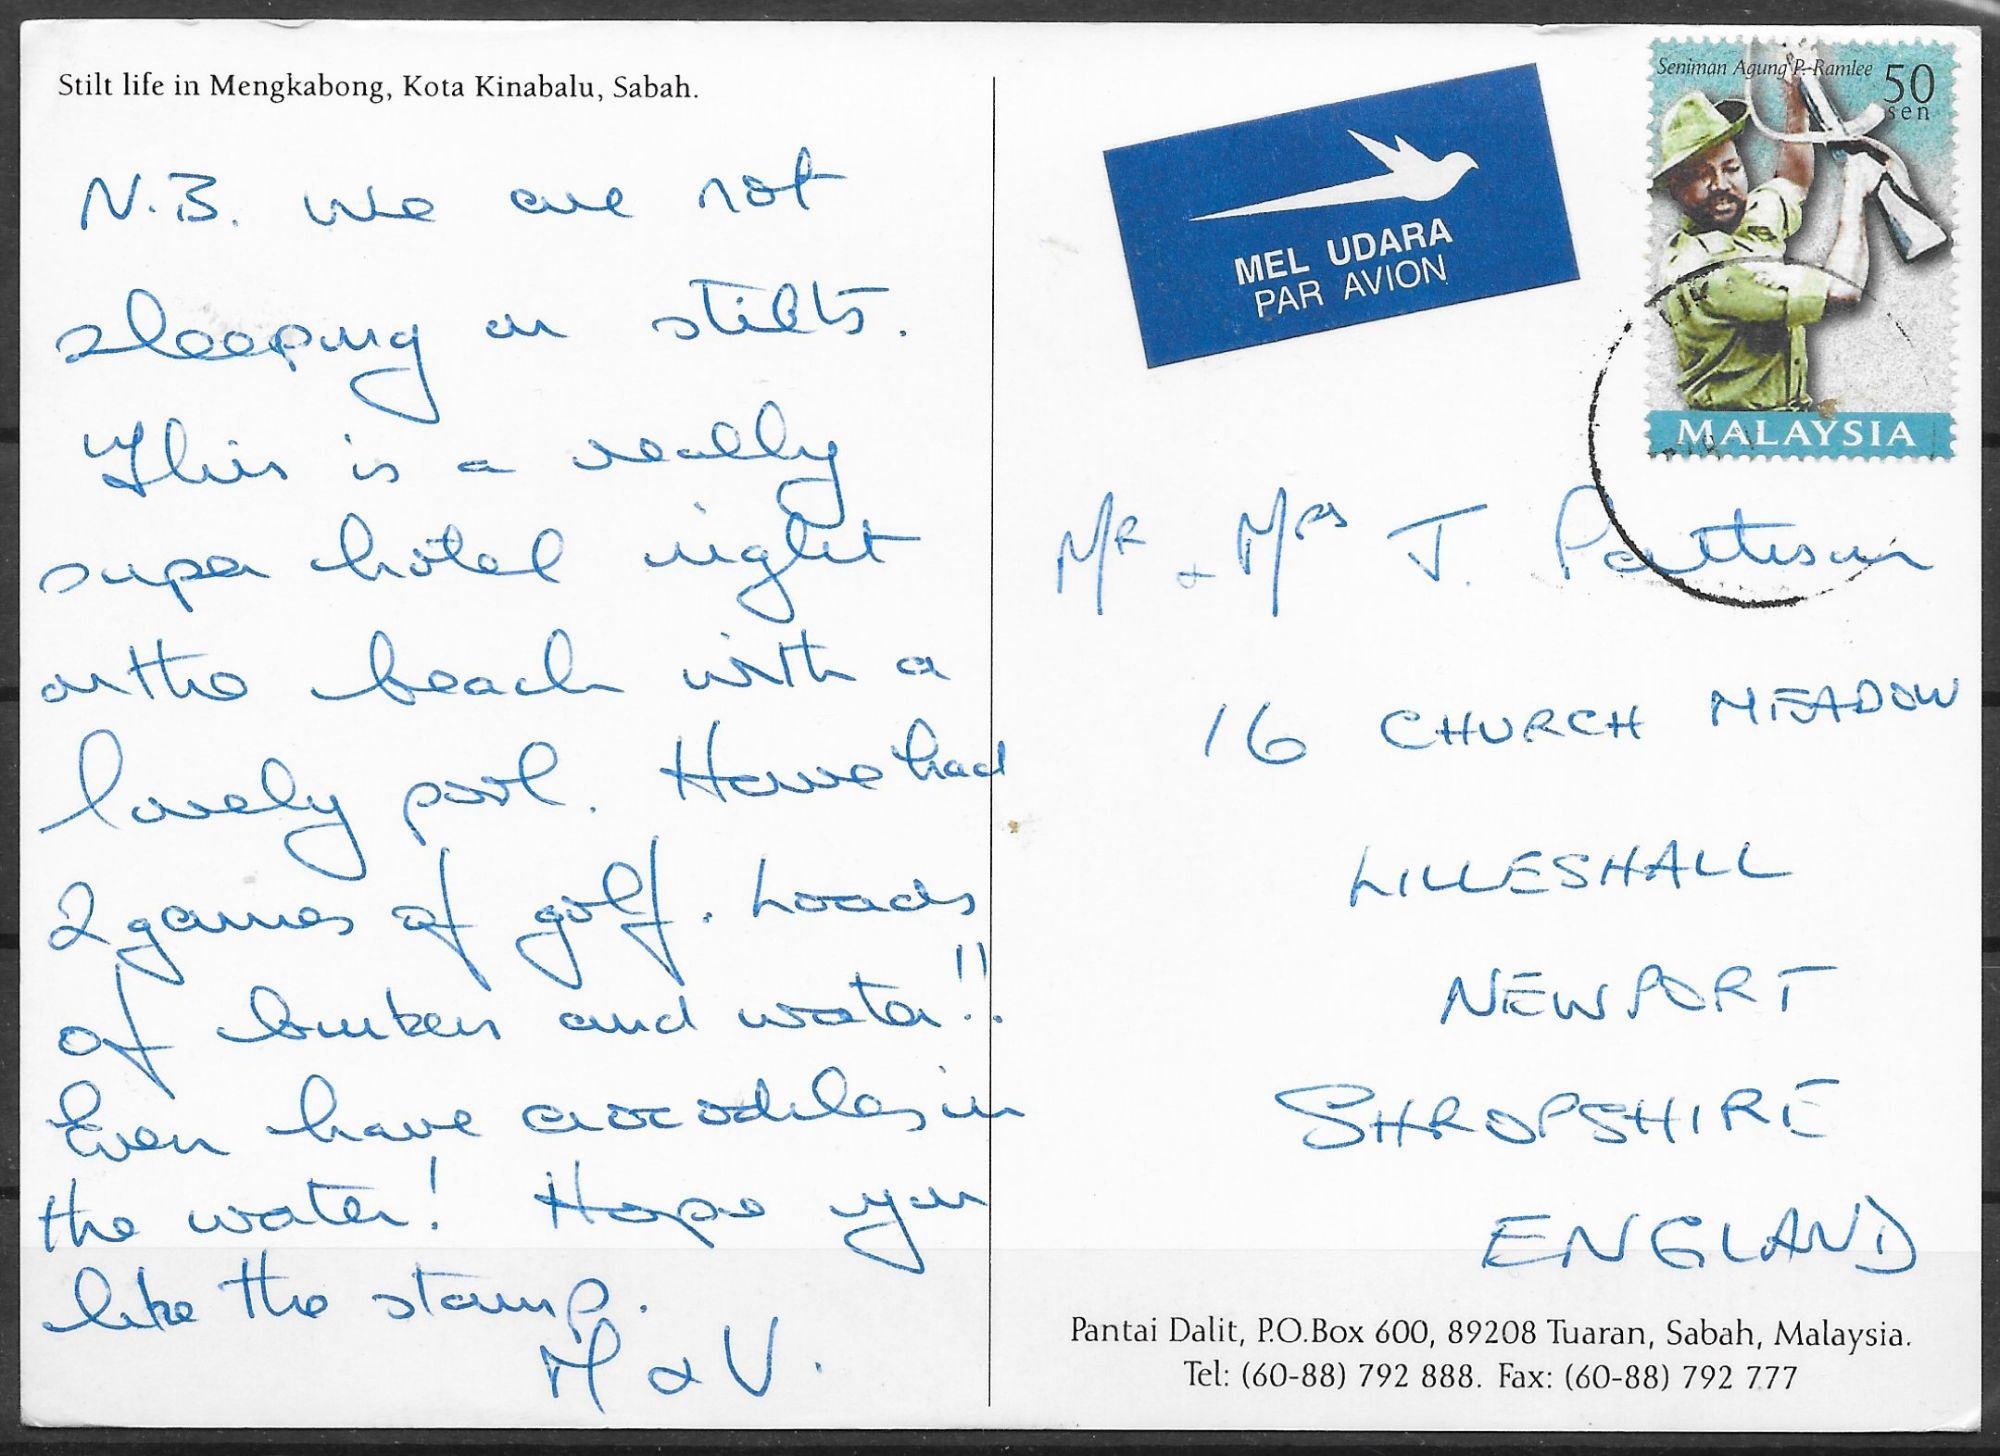 Stilt life in Mengkabong, Kota Kinabalu, Sabah.
N.B. We are not
sleeping on stilts.
This is a really
super hotel right
on the beach with a
lovely pool. Have had
2 games of golf. Loads
of bunkers and water!!
Even have crocodiles in
the water! Hope you
like the stamp.
M & V.
MEL UDARA
PAR AVION
Seniman Agung P. Ramlee 50
sen
MALAYSIA
Mr & Mrs J. Pattison
16 CHURCH MEADOW
LILLESHALL
NEWPORT
SHROPSHIRE
ENGLAND
Pantai Dalit, P.O.Box 600, 89208 Tuaran, Sabah, Malaysia.
Tel: (60-88) 792 888. Fax: (60-88) 792 777